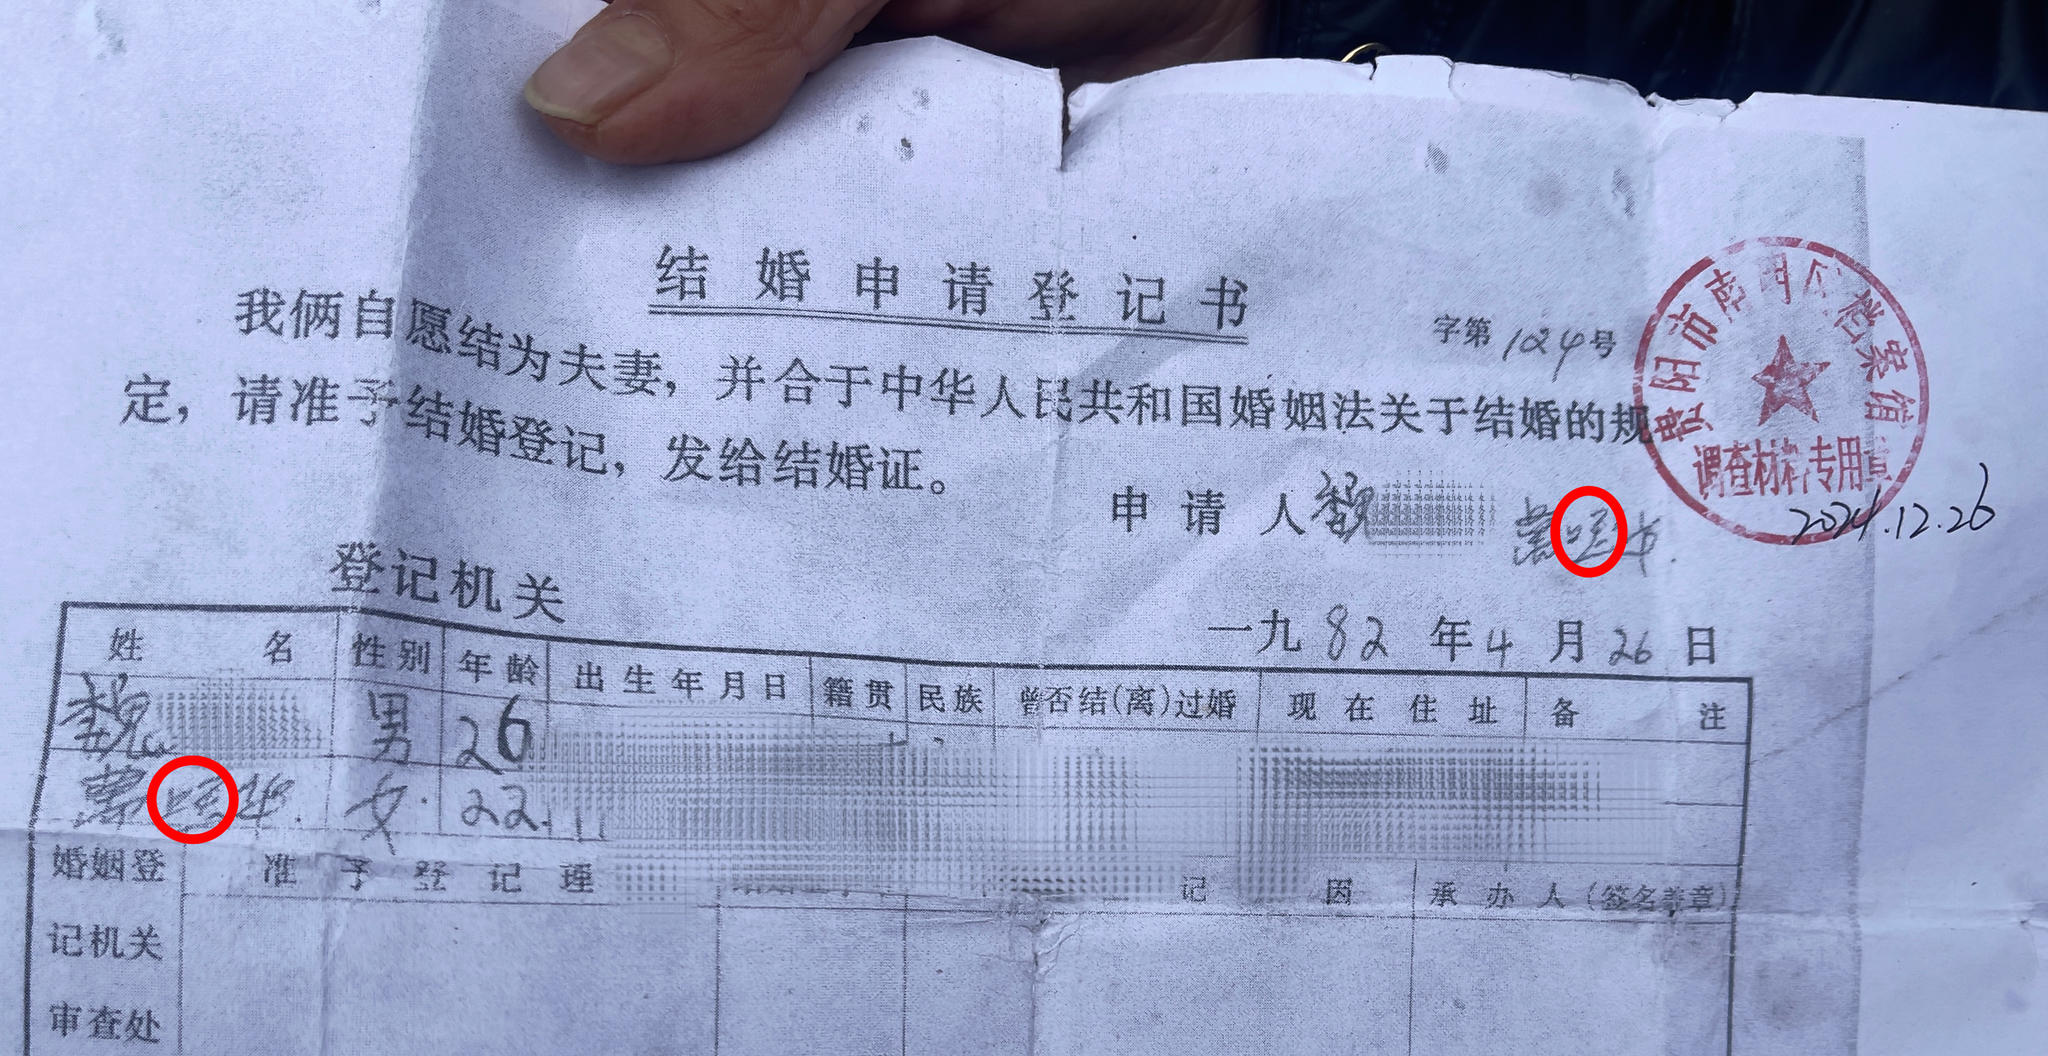 结婚申请登记书
字第124号
我俩自愿结为夫妻，并合于中华人民共和国婚姻法关于结婚的规
定，请准予结婚登记，发给结婚证。
贵阳市南明区档案馆
调查材料专用章
2024.12.26
申请人 魏
登记机关
一九82年4月26日
姓名 性别 年龄 出生年月日 籍贯 民族 曾否结(离)过婚 现在住址 备注
魏 男 26
女 22
婚姻登记机关审查处 准予登记理 记 因 承办人(签名盖章)